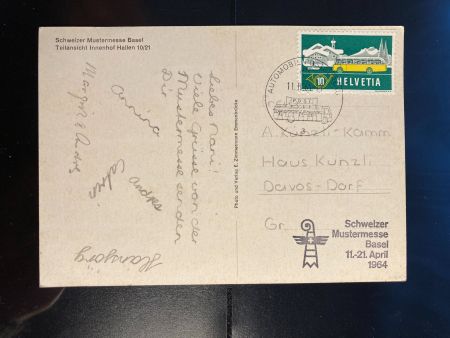 Schweizer Mustermesse Basel
Teilansicht Innenhof Hallen 10/21
Liebes Nani!
Viele Grüsse von der
Mustermesse senden
Dir
Margrit & André
Hansjörg
Photo und Verlag E. Zimmermann
HELVETIA
10
AUTOMOBIL
11.
A. Künzli-Kamm
Haus Künzli
Davos-Dorf
Gr
Schweizer
Mustermesse
Basel
11.-21. April
1964